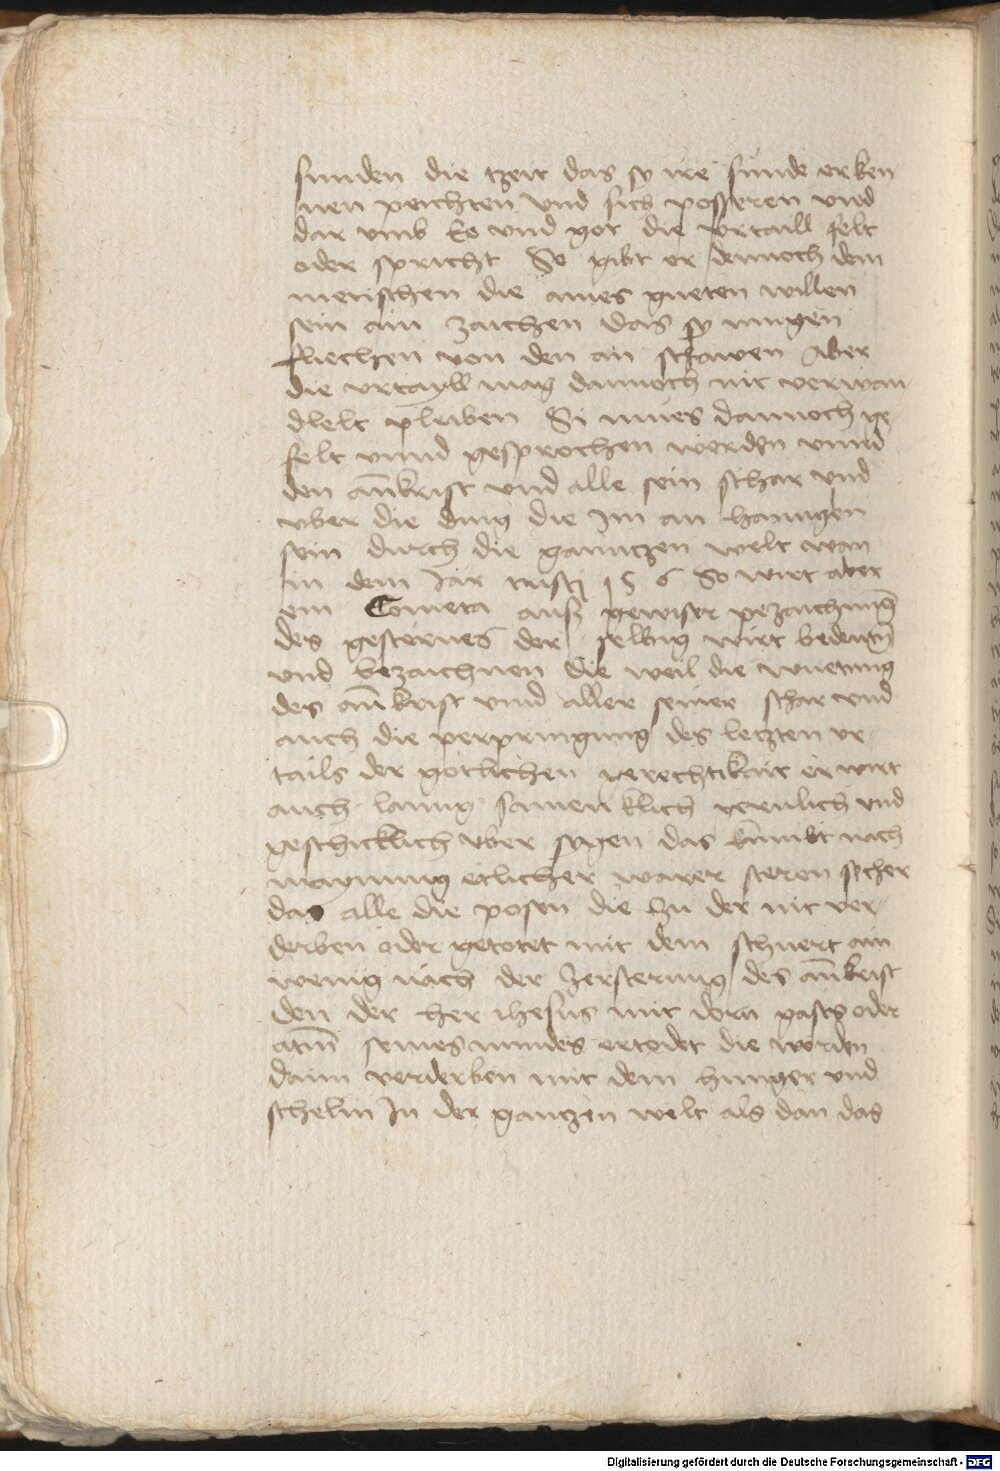 sunden die tzeit das sy ire sunde erken
nen peichten vnd sich posseren vnd
dar vmb Eo vnd got die vrtaill felt
oder spricht So gibt er dennoch den
menschen die aines gueten willen
sein ain zaichen das sy mugen
fliechen von den an schawen Aber
die vrtayll mag dannoch nit verwan
dlelt pleiben Si mues dannoch ge
felt vnnd gesprochen werden vnnd
den antikrist vnd alle sein schar vnd
vber die ding die Im an hanngen
sein durch die ganntzen welt wan
in dem Jar cristi 1 5 6 So wirt aber
ein Cometa auß gewiser pezaichnung
des gestirnes der selbig wirt bedeuten
vnd bezaichnen die weil die wuetung
des antikrist vnnd aller seiner schar vnd
auch die perpringung des letzten vr
tails der gotlichen gerechtikait er wirt
auch lanng samen klich vnd
geschicklich vber sygen das kumbt nach
maynung etlicher warer steren secher
das alle die posen die zu der nit ver
derben oder getotet mit dem schwert ain
wenig nach der zersterung des antikrist
den der her ihesus mit dem gasts oder
atm seines mundes ertodet die werden
dann verderben mit dem hunger vnd
schelm In der gantzen welt als dan das
Digitalisierung gefördert durch die Deutsche Forschungsgemeinschaft - DFG